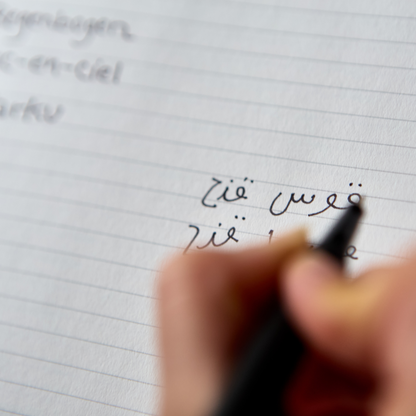 Regenbogen
c-en-ciel
arku
قوس قزح
قزح